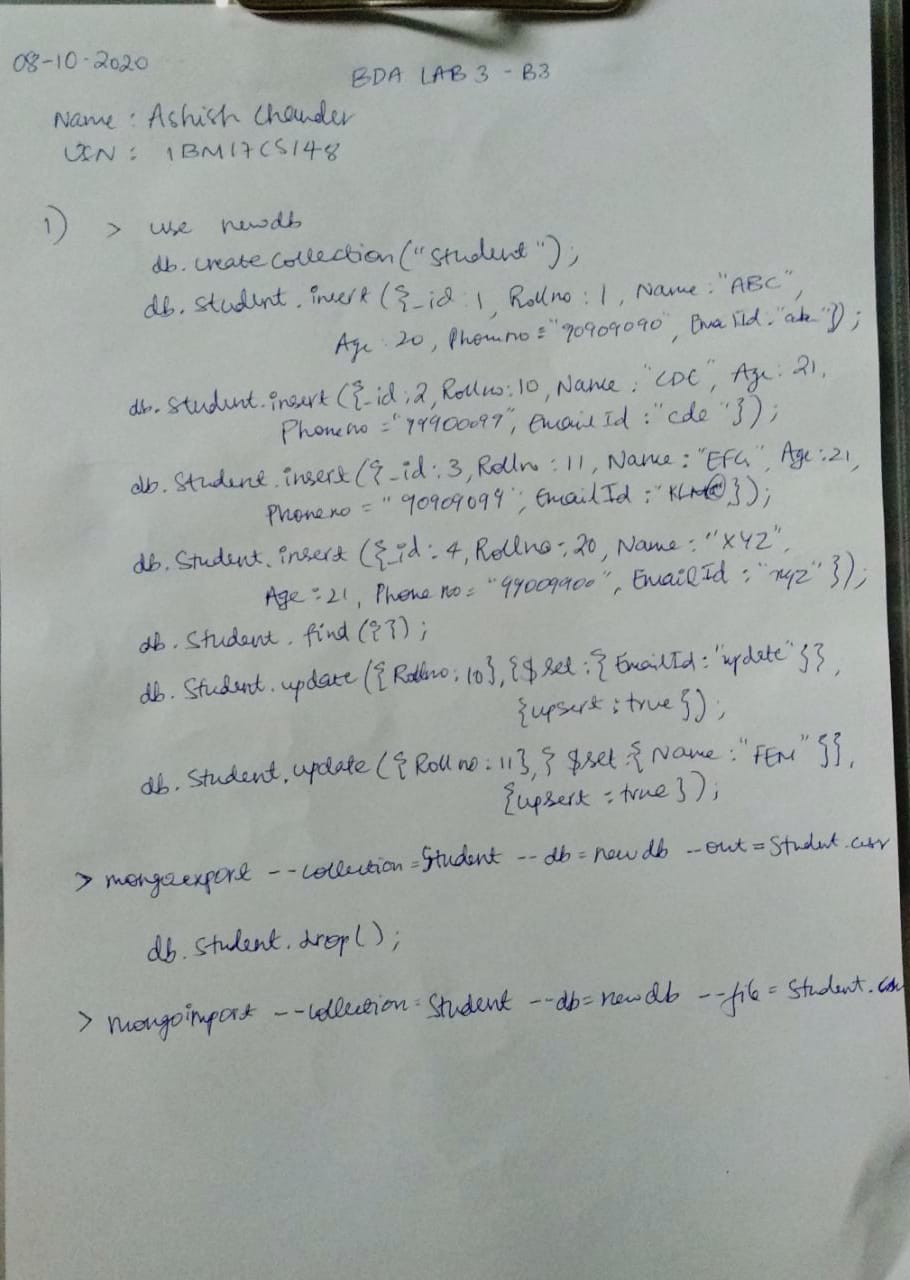 08-10-2020
BDA LAB 3 - B3
Name : Ashish Chander
USN : 1BM17CS148
1) > use newdb
db.createCollection("Student");
db.Student.insert({_id:1, Rollno:1, Name:"ABC",
Age:20, Phoneno="90909090", EmailId:"abc"});
db.Student.insert({_id:2, Rollno:10, Name:"CDE", Age:21,
Phoneno="99900099", EmailId:"cde"});
db.Student.insert({_id:3, Rollno:11, Name:"EFG", Age:21,
Phoneno="90909099", EmailId:"KLM"});
db.Student.insert({_id:4, Rollno:20, Name:"XYZ",
Age:21, Phone no="99009900", EmailId:"xyz"});
db.Student.find({});
db.Student.update({Rollno:10},{$set:{EmailId:"update"}},
{upsert:true});
db.Student.update({Rollno:11},{$set:{Name:"FEM"}},
{upsert:true});
> mongoexport --collection=Student --db=newdb --out=Student.csv
db.Student.drop();
> mongoimport --collection=Student --db=newdb --file=Student.csv